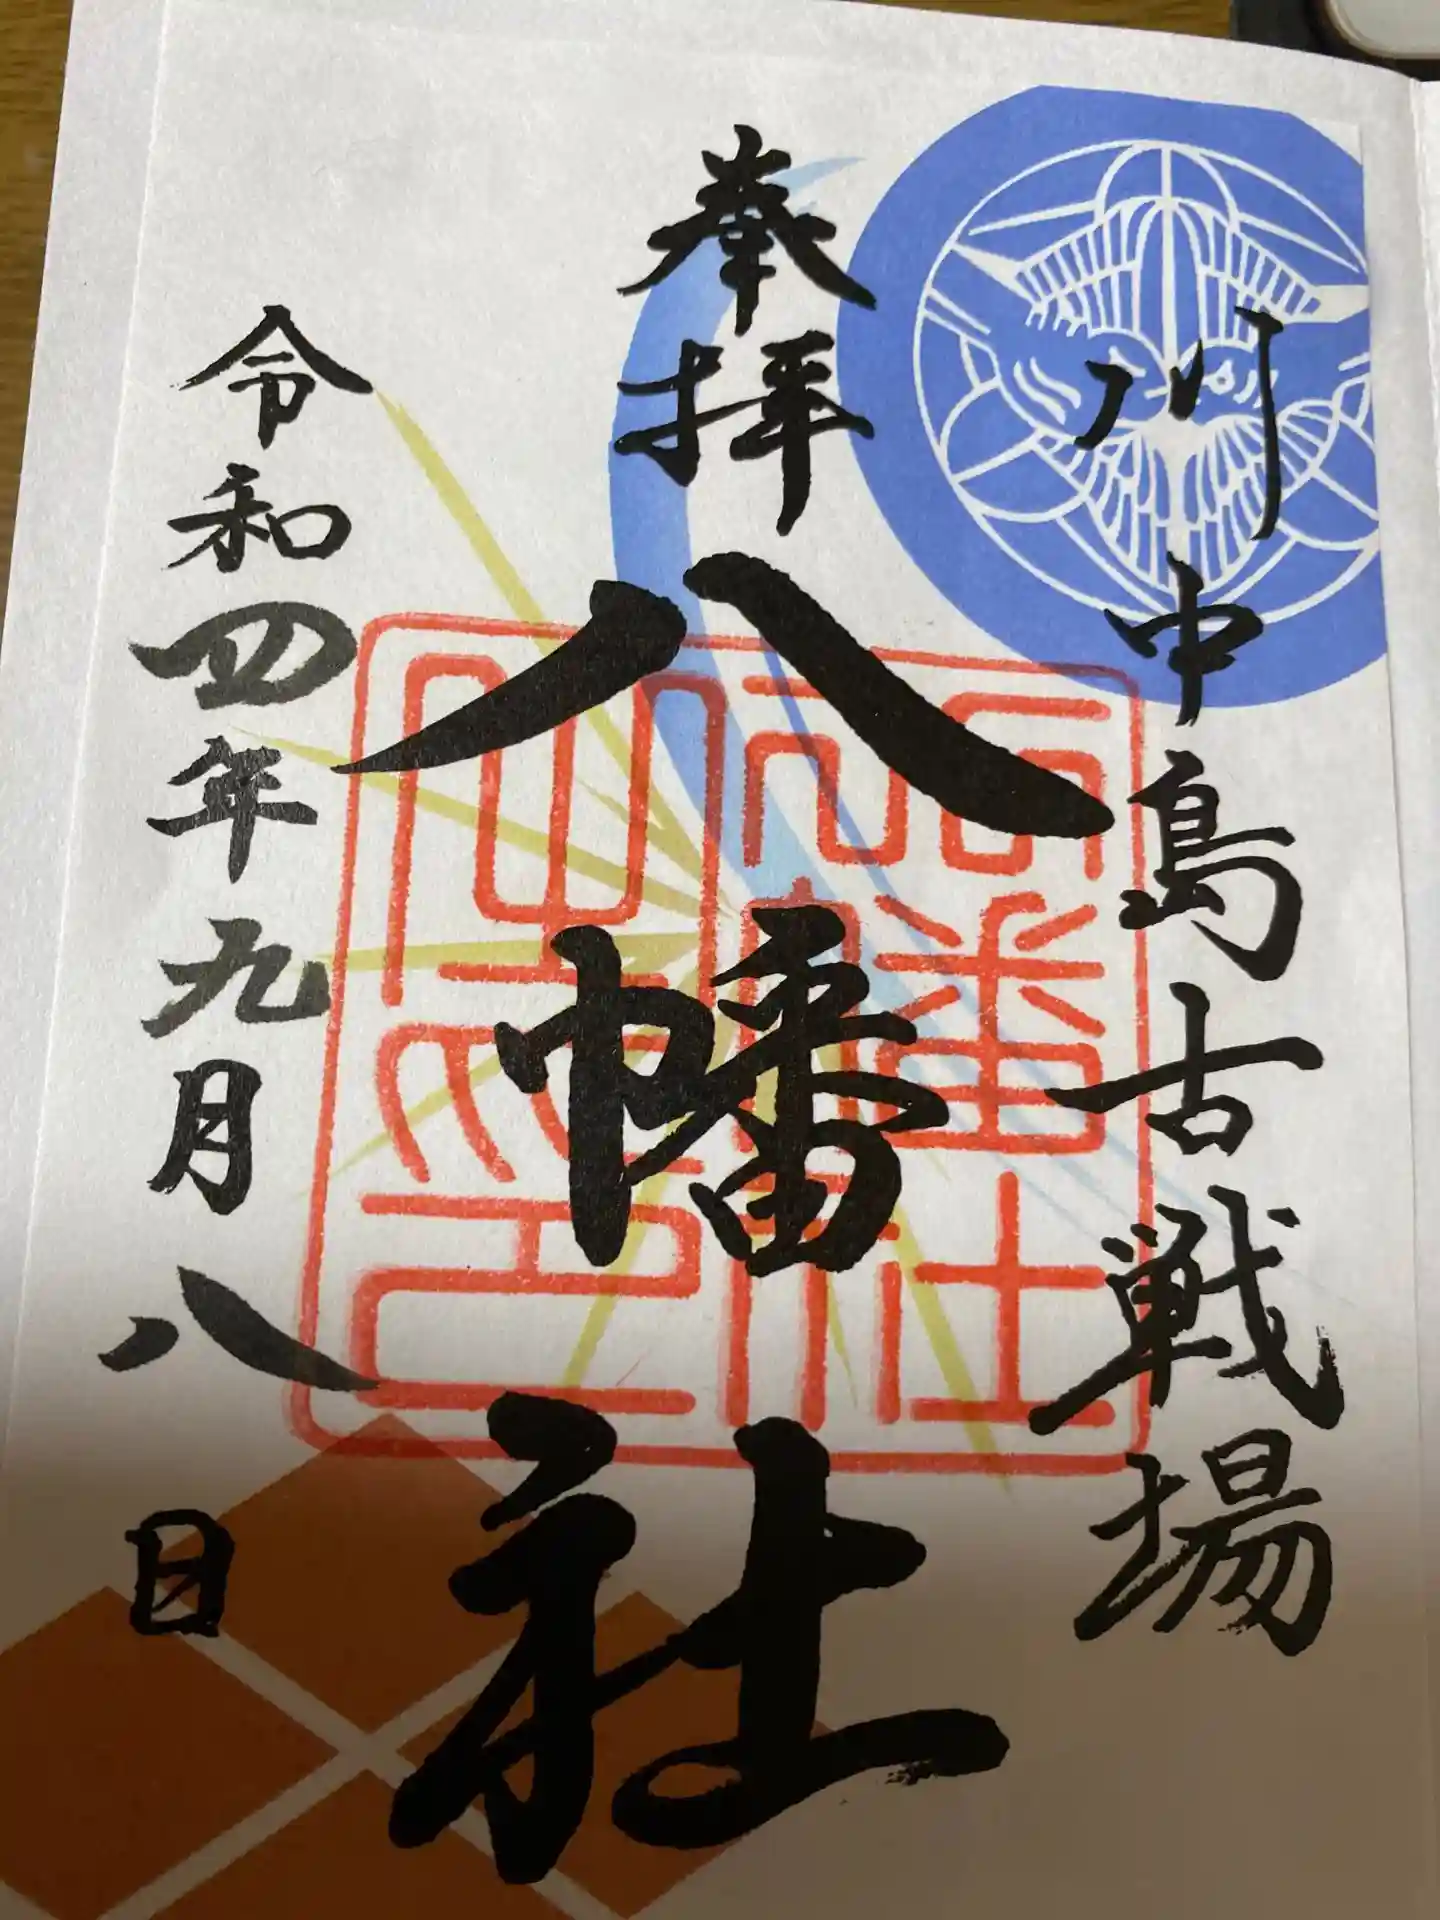 川中島古戦場
奉拝
八幡社
令和四年九月八日